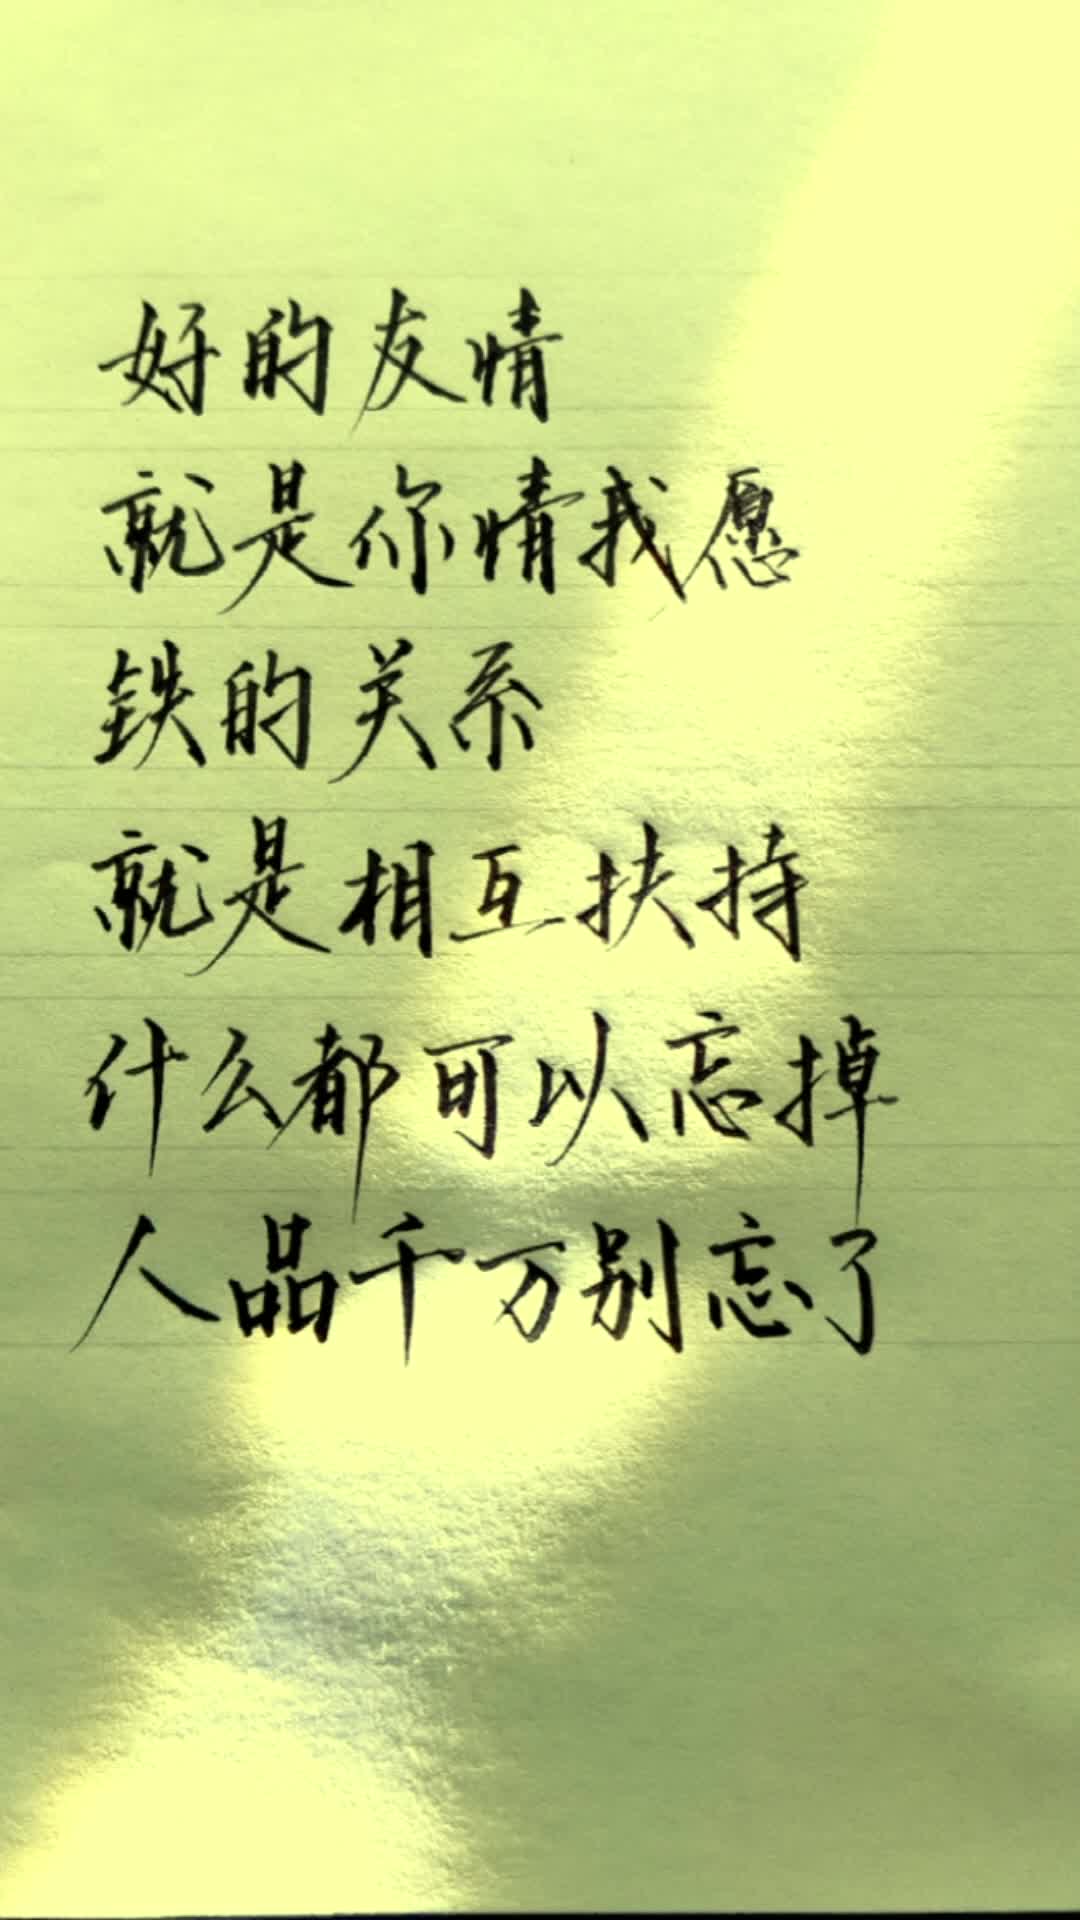 好的友情
就是你情我愿
铁的关系
就是相互扶持
什么都可以忘掉
人品千万别忘了